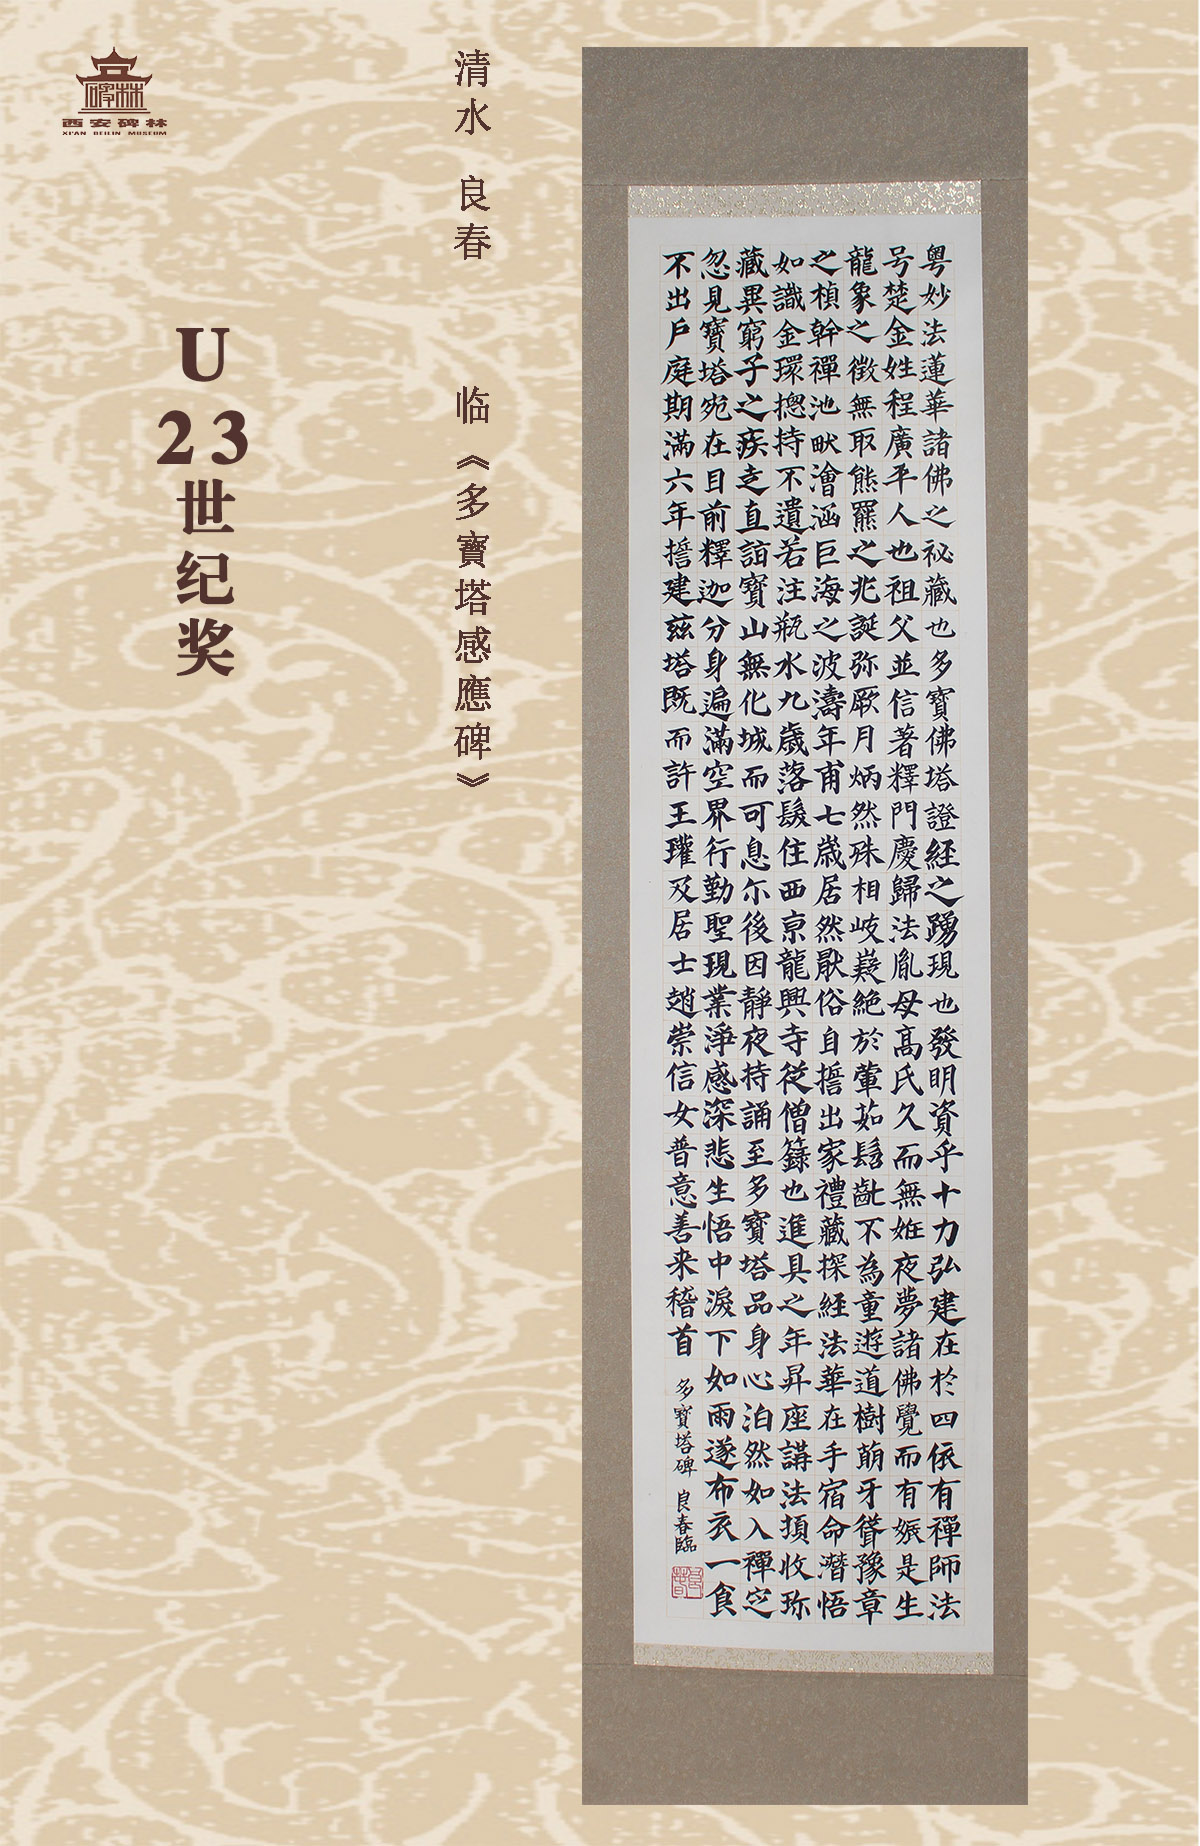 西安碑林
XI'AN BEILIN MUSEUM
U
23
世纪奖
清水 良春 临《多寶塔感應碑》
粤妙法蓮華諸佛之祕藏也多寶佛塔證經之踴現也發明資乎十力弘建在於四依有禪師法
号楚金姓程廣平人也祖父並信著釋門慶歸法胤母高氏久而無姙夜夢諸佛覺而有娠是生
龍象之徵無取熊羆之兆誕弥厥月炳然殊相岐嶷絕於葷茹髫齓不為童遊道樹萌牙聳豫章
之楨幹禪池畎澮涵巨海之波濤年甫七歲居然猒俗自誓出家禮藏探經法華在手宿命潛悟
如識金環揔持不遺若注瓶水九歲落髮住西京龍興寺從僧籙也進具之年昇座講法頓收珎
藏異窮子之疾走直詣寶山無化城而可息尒後因靜夜持誦至多寶塔品身心泊然如入禪定
忽見寶塔宛在目前釋迦分身遍滿空界行勤聖現業淨感深悲生悟中淚下如雨遂布衣一食
不出戶庭期滿六年誓建茲塔既而許王瓘及居士趙崇信女普意善来稽首 多寶塔碑 良春臨